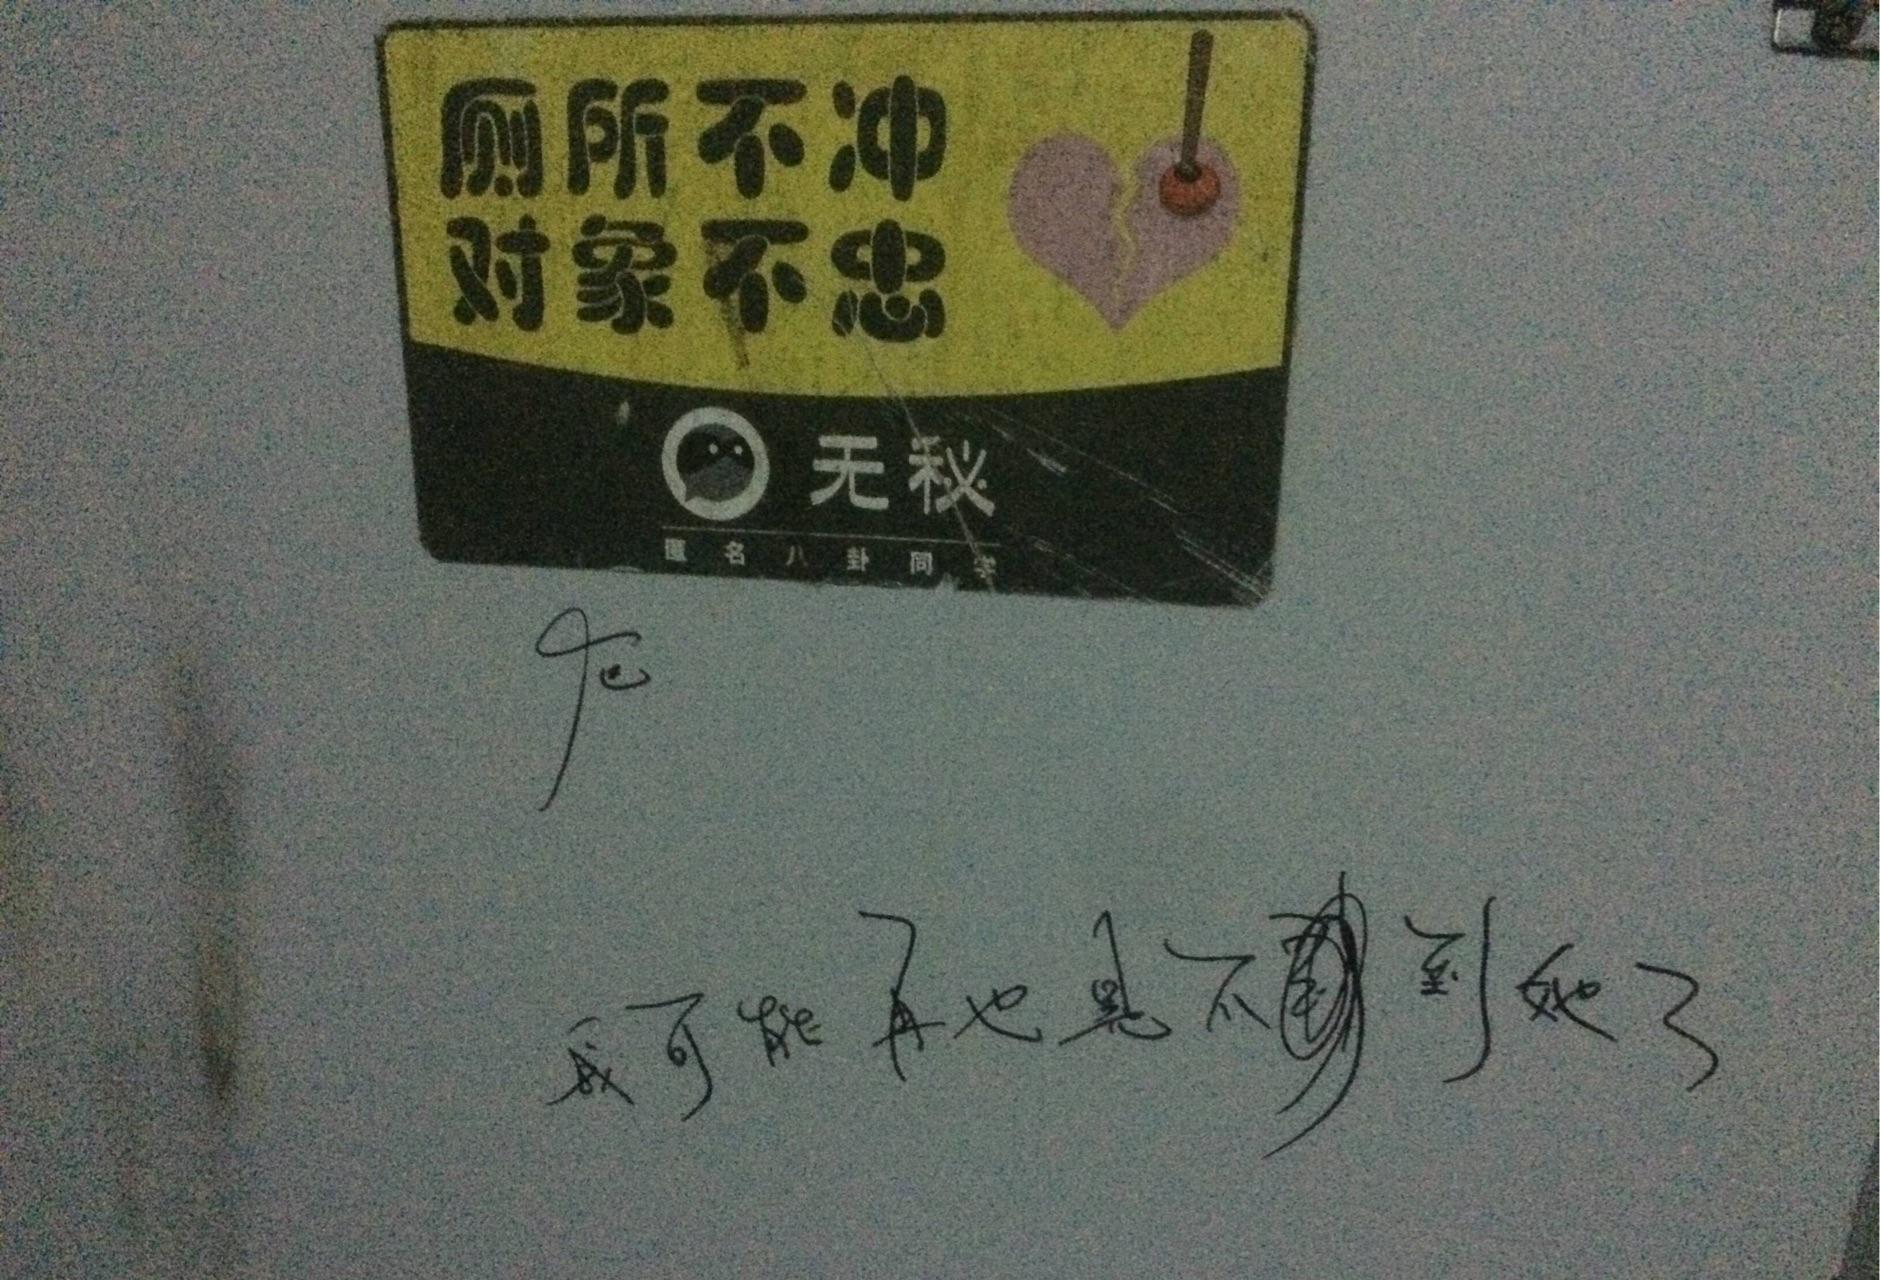 厕所不冲
对象不忠
无秘
匿名八卦同学
我可能再也見不到她了